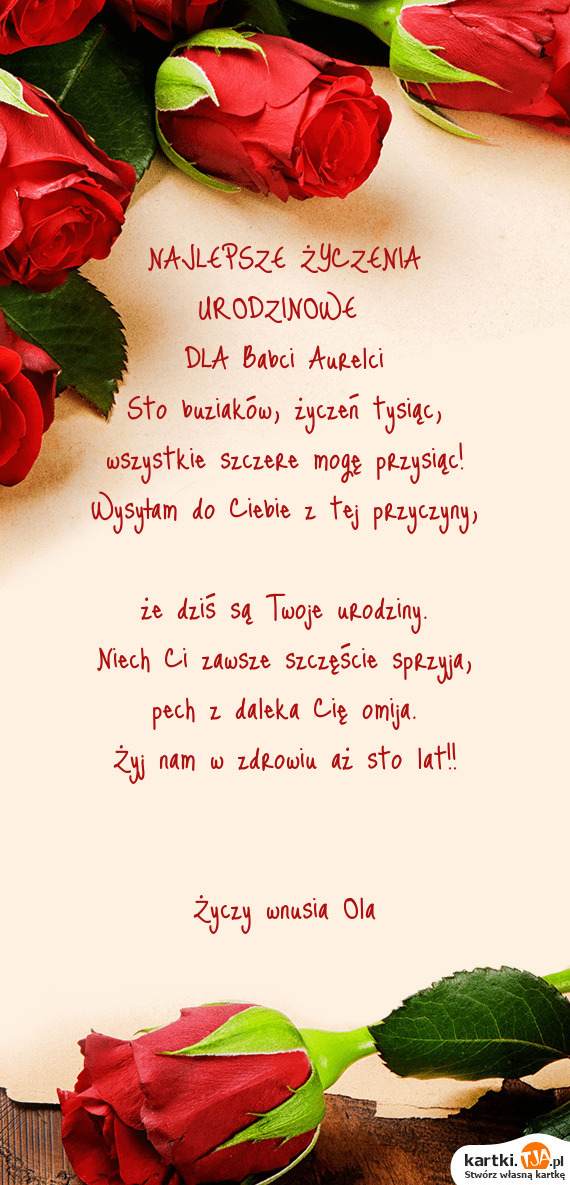 NAJLEPSZE ŻYCZENIA
URODZINOWE
DLA Babci Aurelci
Sto buziaków, życzeń tysiąc,
wszystkie szczere mogę przysiąc!
Wysyłam do Ciebie z tej przyczyny,
że dziś są Twoje urodziny.
Niech Ci zawsze szczęście sprzyja,
pech z daleka Cię omija.
Żyj nam w zdrowiu aż sto lat!!
Życzy wnusia Ola
kartki.TJA.pl
Stwórz własną kartkę